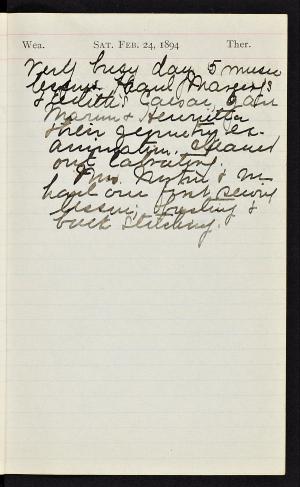 Wea. SAT. FEB. 24, 1894 Ther.
Very busy day 5 music
lessons. Heard Margery's
& Edith's Caesar,
Marian & Henrietta
their geometry ex-
amination. Cleaned
out
Mrs. & we
have our first sewing
lesson, basting &
back stitching.